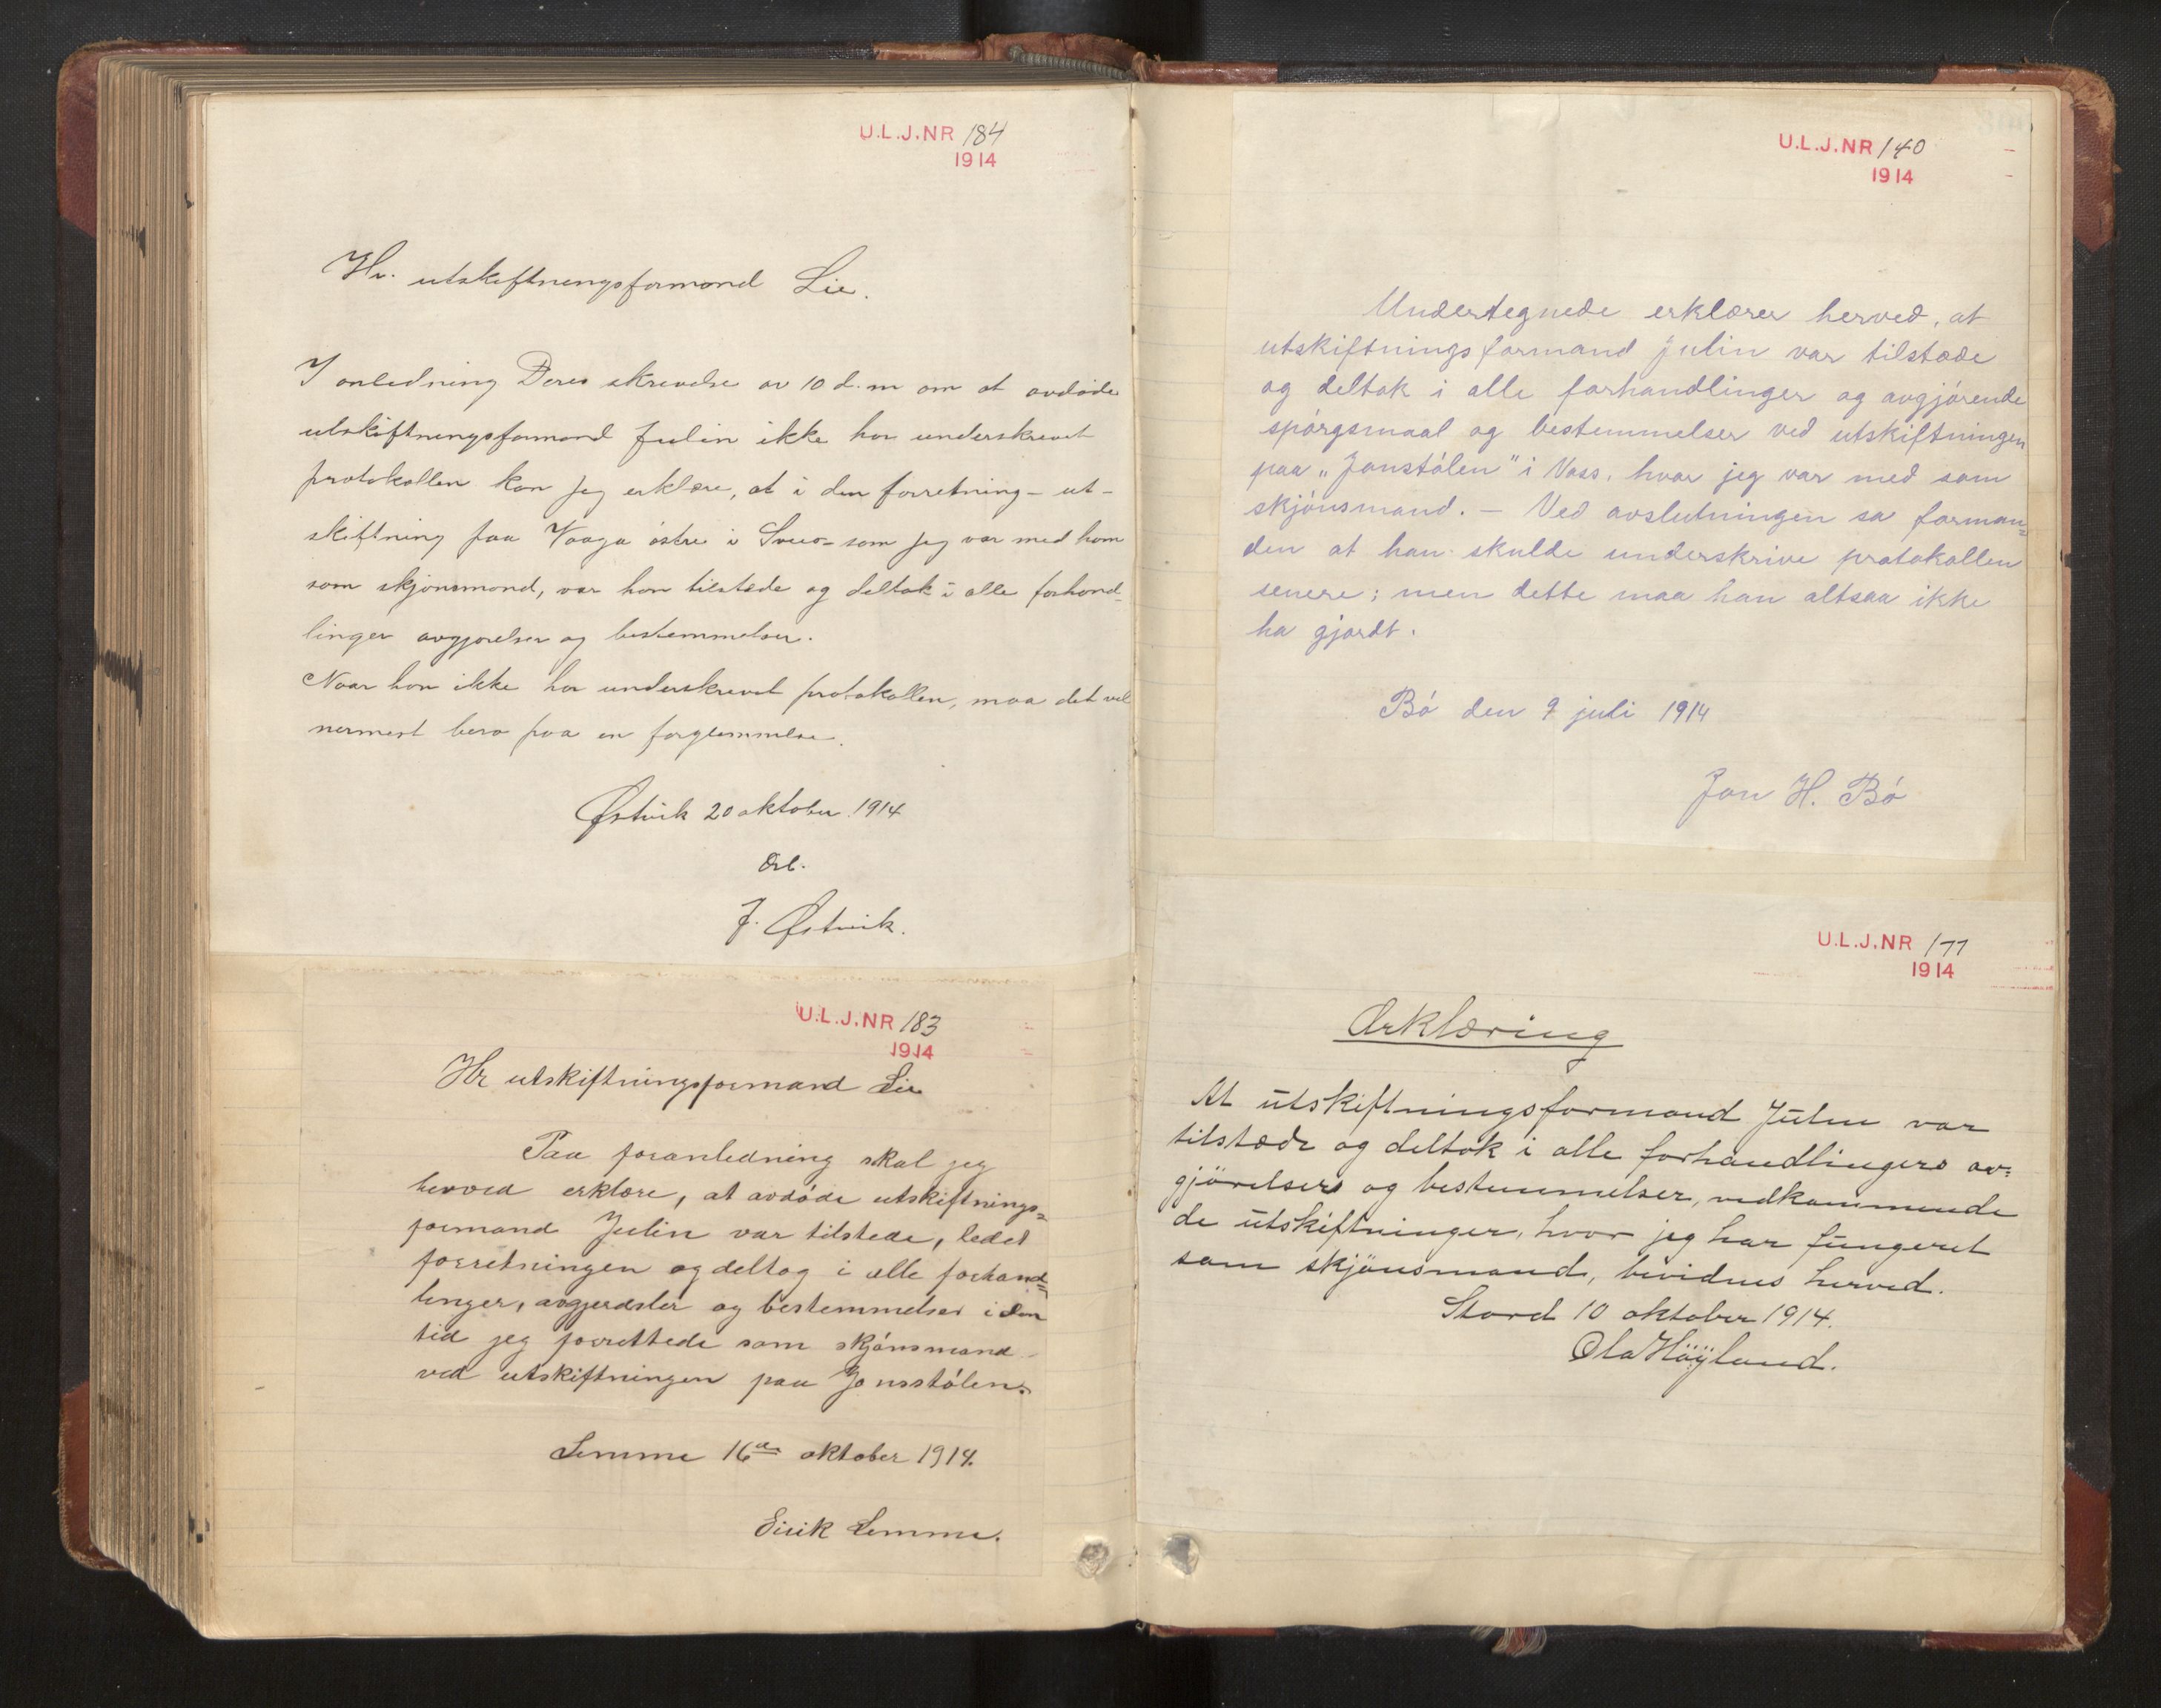 U.L.J.NR 184
1914
Hr. utskiftningsformand Lie.
I anledning Deres skrivelse av 10 d.m om at avdøde
utskiftningsformand Julin ikke har underskrevet
protokollen kan jeg erklære, at i den forretning – ut-
skiftning paa Vaaga østre i Sveio – som jeg var med ham
som skjønsmand, var han tilstede og deltok i alle forhand-
linger avgjørelser og bestemmelser.
Naar han ikke har underskrevet protokollen, maa det vel
nermest bero paa en forglemmelse.
Østvik 20 oktober 1914
Ærb.
J. Østvik.
U.L.J.NR 183
1914
Hr utskiftningsformand Lie
Paa foranledning skal jeg
herved erklære, at avdøde utskiftnings=
formand Julin var tilstede, ledet
forretningen og deltog i alle forhand=
linger, avgjerdsler og bestemmelser i den
tid jeg forrettede som skjønsmand
ved utskiftningen paa Jonsstølen.
Lemme 16de oktober 1914.
Eirik Lemme.
U.L.J.NR 140
1914
Undertegnede erklærer herved, at
utskiftningsformand Julin var tilstæde
og deltok i alle forhandlinger og avgjørende
spørgsmaal og bestemmelser ved utskiftningen
paa „Jonstølen" i Voss, hvor jeg var med som
skjønsmand. – Ved avslutningen sa forman=
den at han skulde underskrive protokollen
senere; men dette maa han altsaa ikke
ha gjordt.
Bø den 9 juli 1914
Jon H. Bø
U.L.J.NR 177
1914
Erklæring
At utskiftningsformand Julin var
tilstæde og deltok i alle forhandlinger av=
gjörelser og bestemmelser, vedkommende
de utskiftninger, hvor jeg har fungeret
som skjönsmand, bevidnes herved.
Stord 10 oktober 1914.
Ola Höyland.